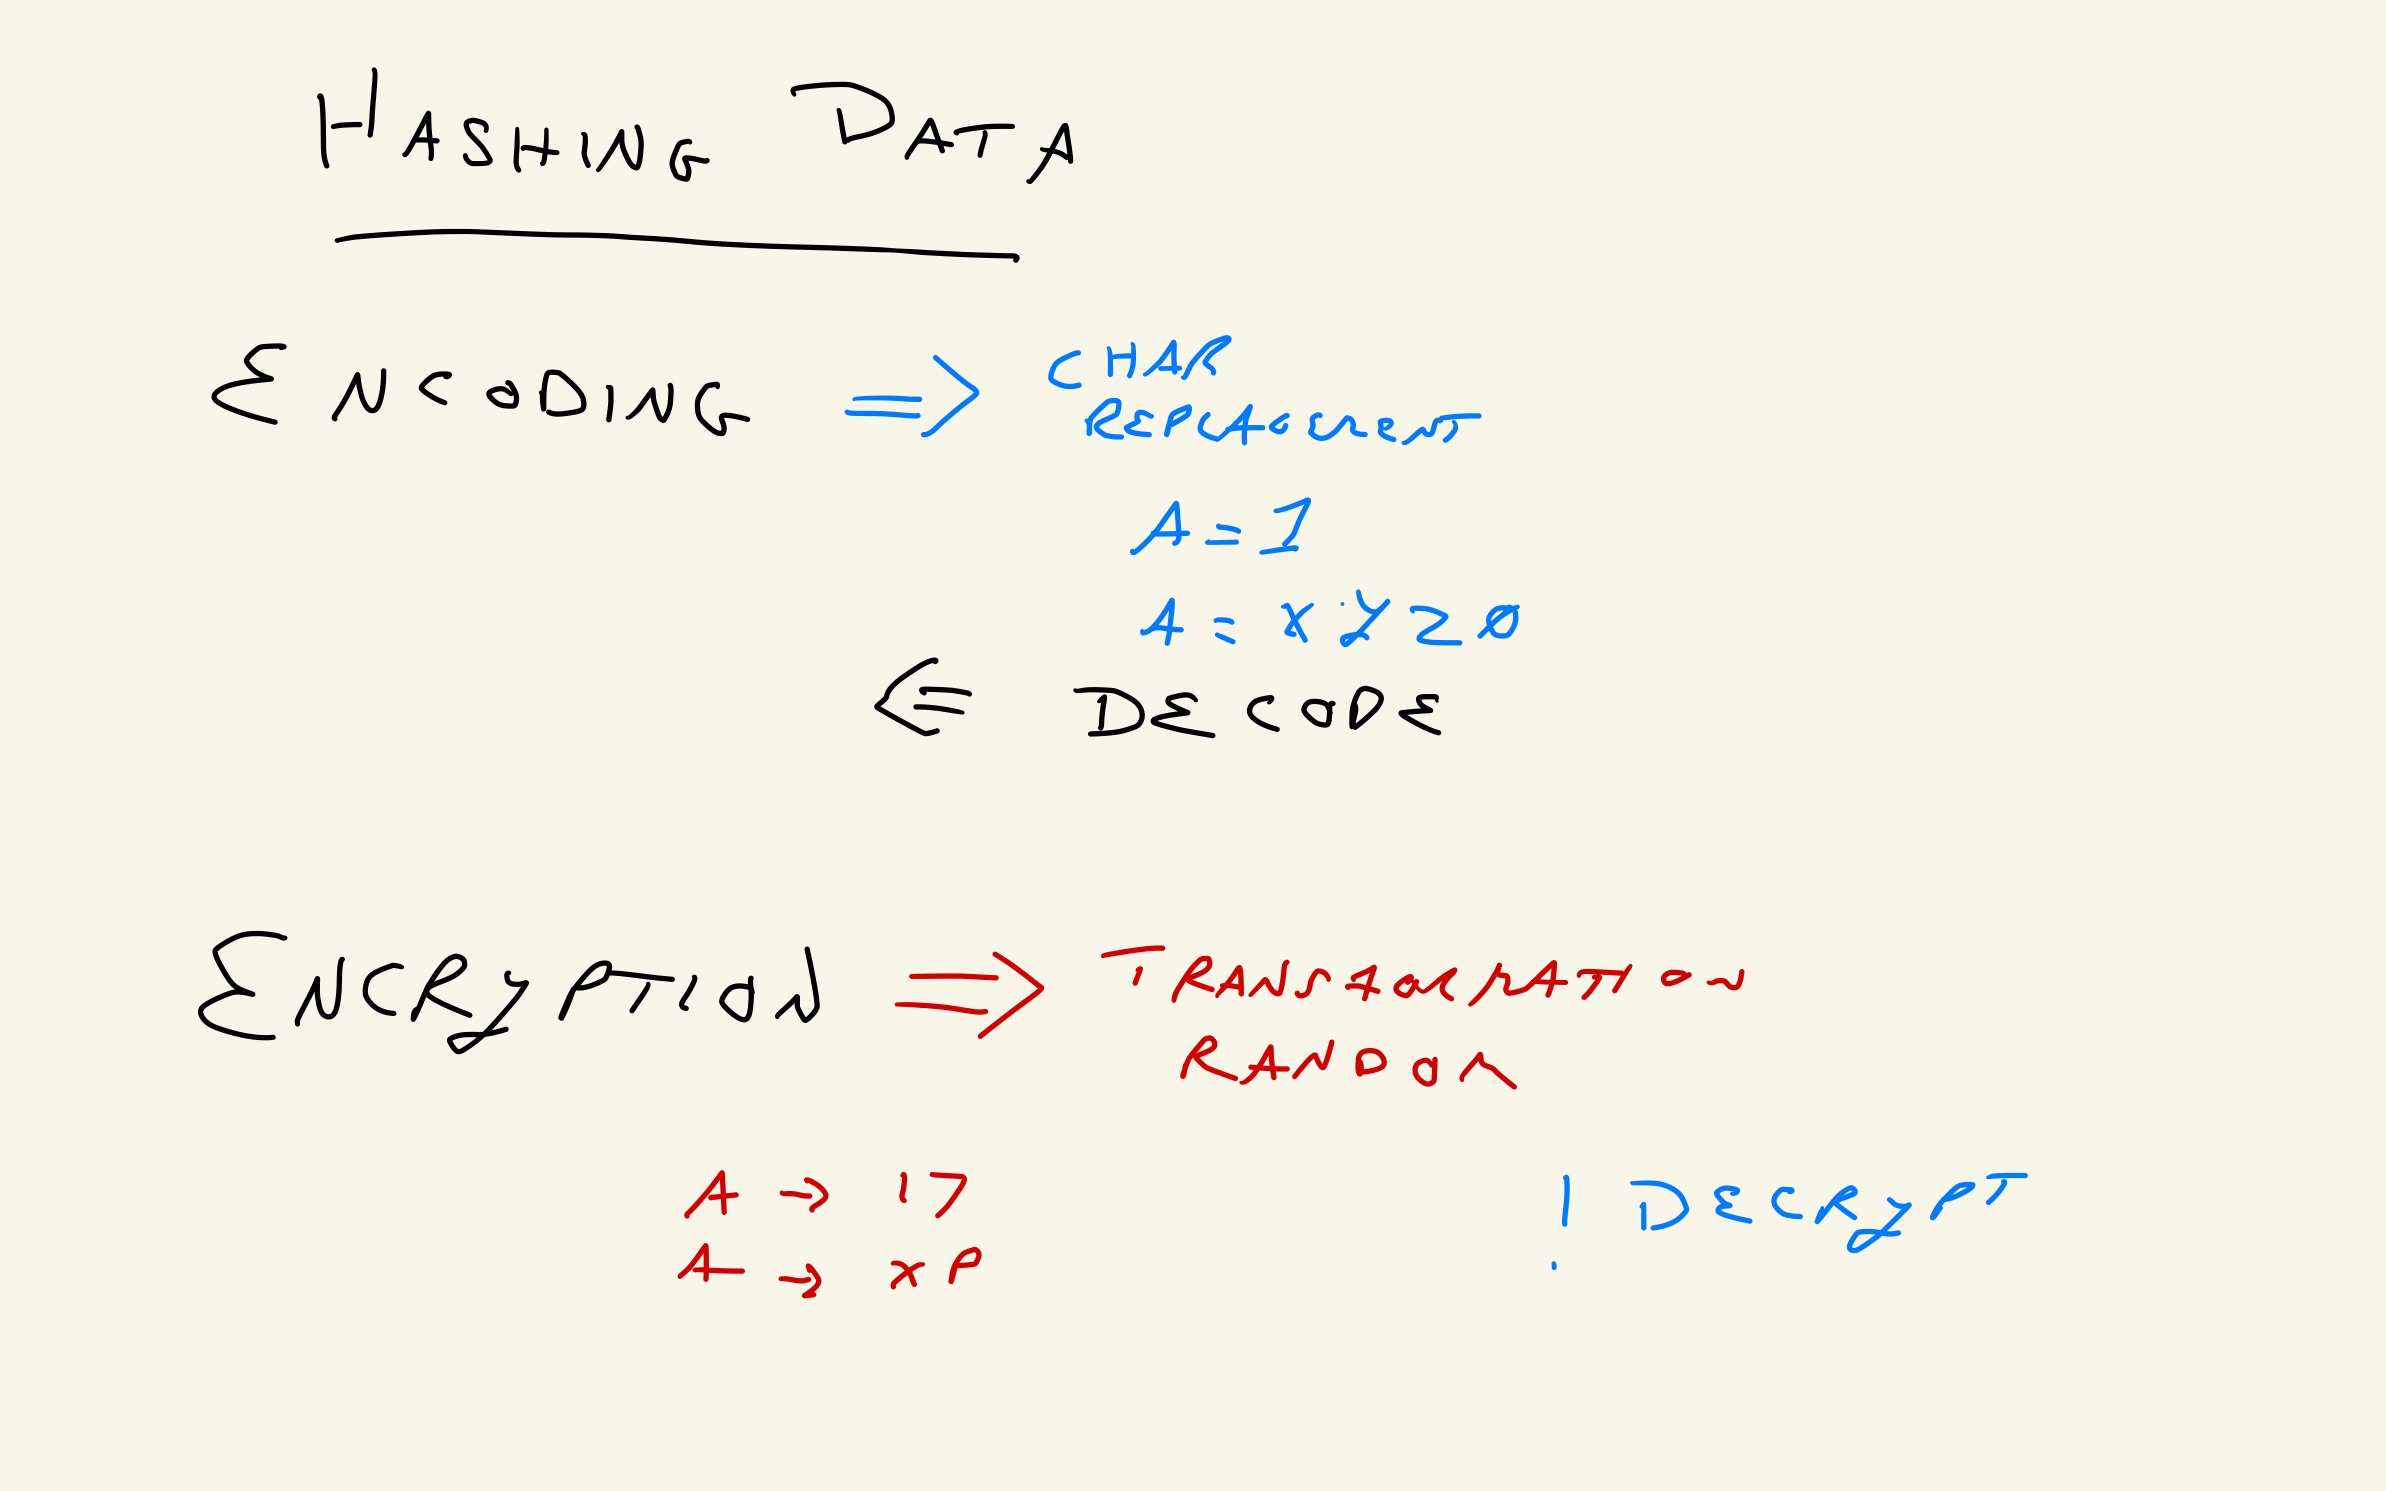 HASHING DATA
ENCODING ⇒ CHAR
REPLACEMENT
A = 1
A = XYZ0
⇐ DECODE
ENCRYPTION ⇒ TRANSFORMATION
RANDOM
A → 17
A → XP
! DECRYPT